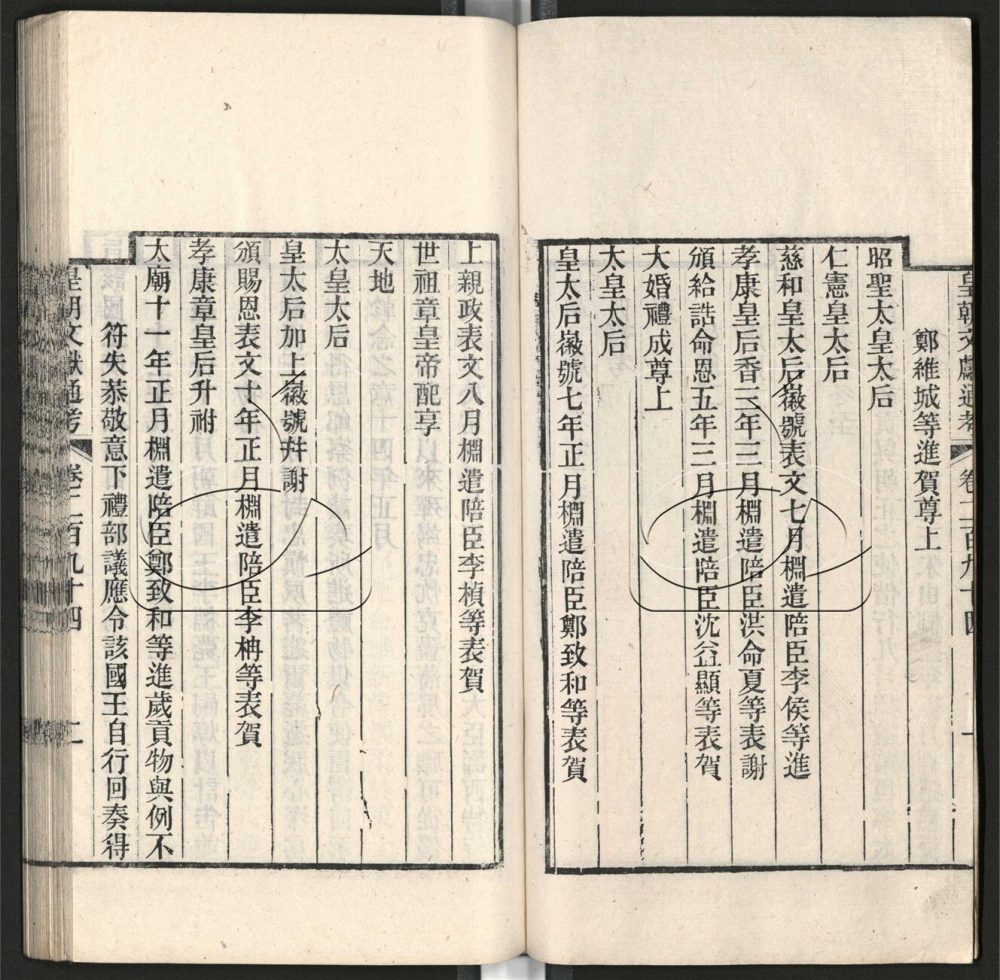 皇朝文獻通考 卷二百九十四 一
鄭維城等進賀尊上
昭聖太皇太后
仁憲皇太后
慈和皇太后徽號表文七月棩遣陪臣李俟等進
孝康皇后香三年三月棩遣陪臣洪命夏等表謝
頒給誥命恩五年三月棩遣陪臣沈益顯等表賀
大婚禮成尊上
太皇太后
皇太后徽號七年正月棩遣陪臣鄭致和等表賀
上親政表文八月棩遣陪臣李楨等表賀
世祖章皇帝配享
天地
太皇太后
皇太后加上徽號幷謝
頒賜恩表文十年正月棩遣陪臣李柟等表賀
孝康章皇后升祔
太廟十一年正月棩遣陪臣鄭致和等進歲貢物與例不
符失恭敬意下禮部議應令該國王自行回奏得
皇朝文獻通考 卷二百九十四 二